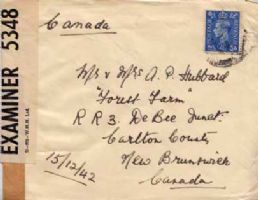 EXAMINER 5348
Canada
Mr & Mrs A. P. Hubbard
"Forest Farm"
R R 3. De Bec Junct.
Carlton County
New Brunswick
15/12/42
Canada